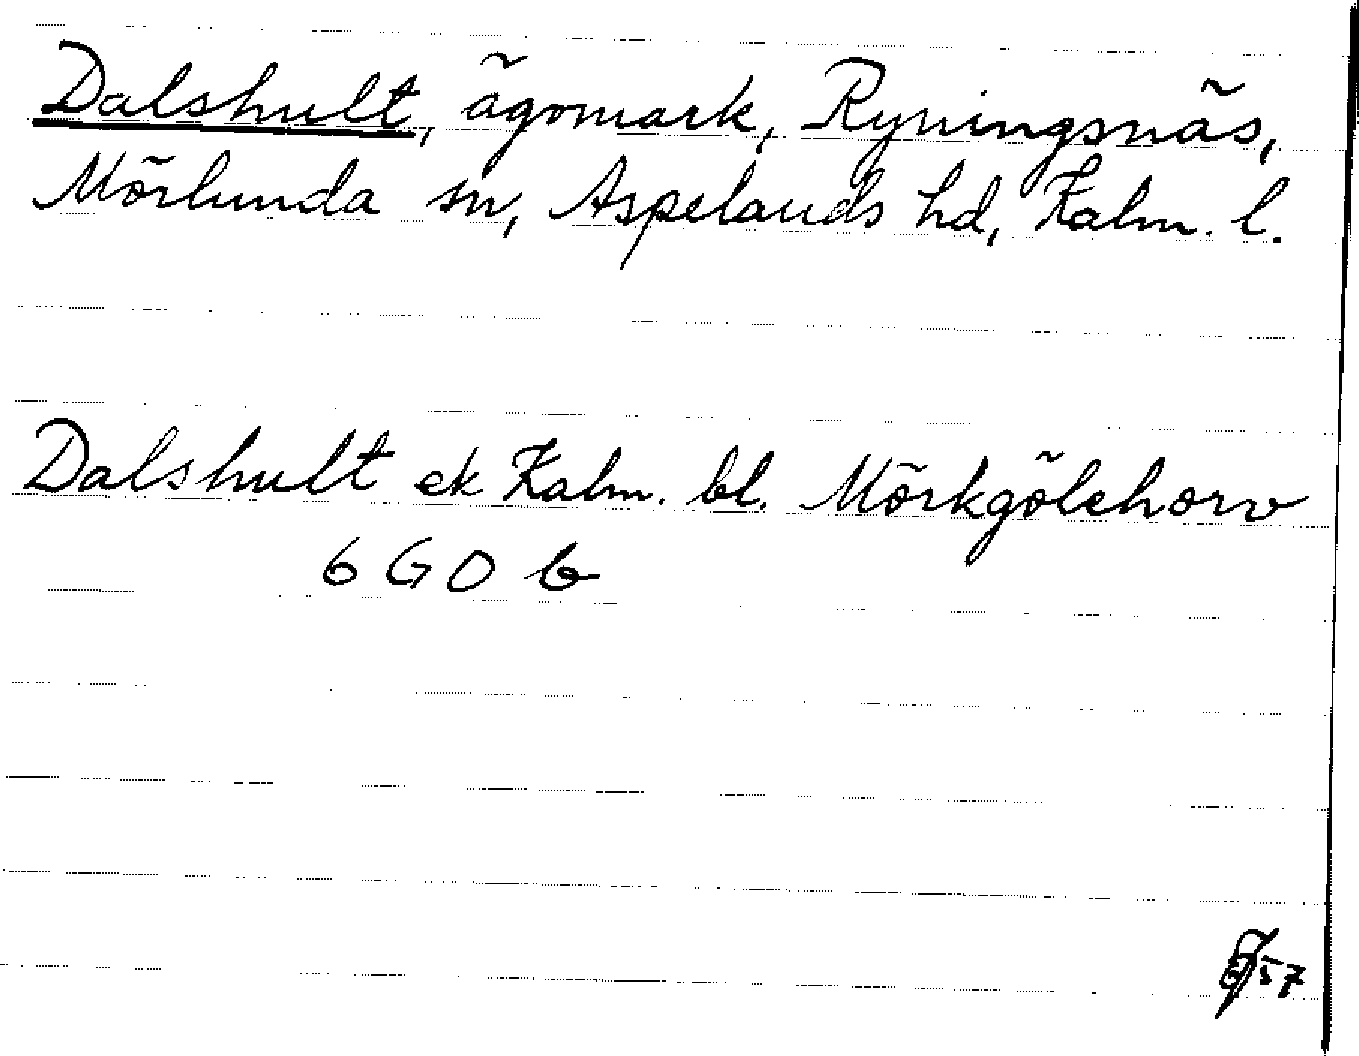 Dalshult, ägomark, Ryningsnäs,
Mörlunda sn, Aspelands hd, Kalm. l.
Dalshult ek Kalm. bl. Mörkgölehorv
6 G O b
57